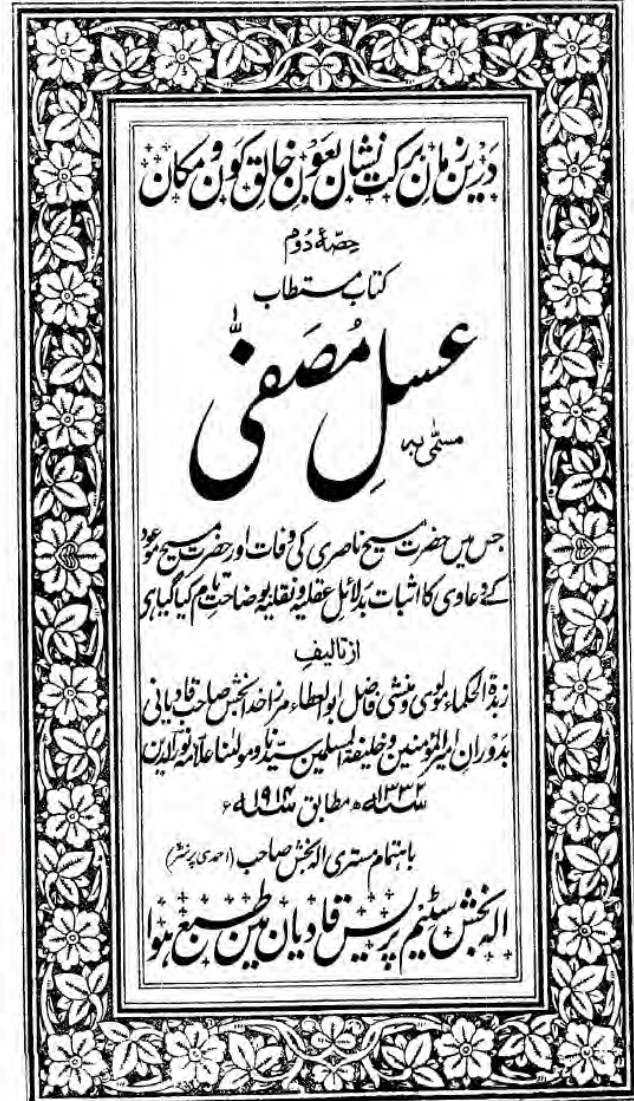 درین زمان برکت نشان بعون خالق کون و مکان
حصّۂ دوم
کتاب مستطاب
عسلِ مُصفّٰی
مسمّٰی بہ
جس میں حضرت مسیح ناصری کی وفات اور حضرت مسیح موعود
کے دعاوی کا اثبات بدلائلِ عقلیہ و نقلیہ بوضاحتِ تام کیا گیا ہی
از تالیفِ
زبدۃ الحکماء مولوی و منشی فاضل ابوالعطاء مرزا خدا بخش صاحب قادیانی
بدوران امیر المؤمنین و خلیفۃ المسلمین سیّدنا و مولٰنا علامہ نورالدین
سنہ ۱۳۳۲ھ مطابق سنہ ۱۹۱۴ء
باہتمام مستری الہ بخش صاحب (احمدی پرنٹر)
الہ بخش سٹیم پریس قادیان میں طبع ہوا